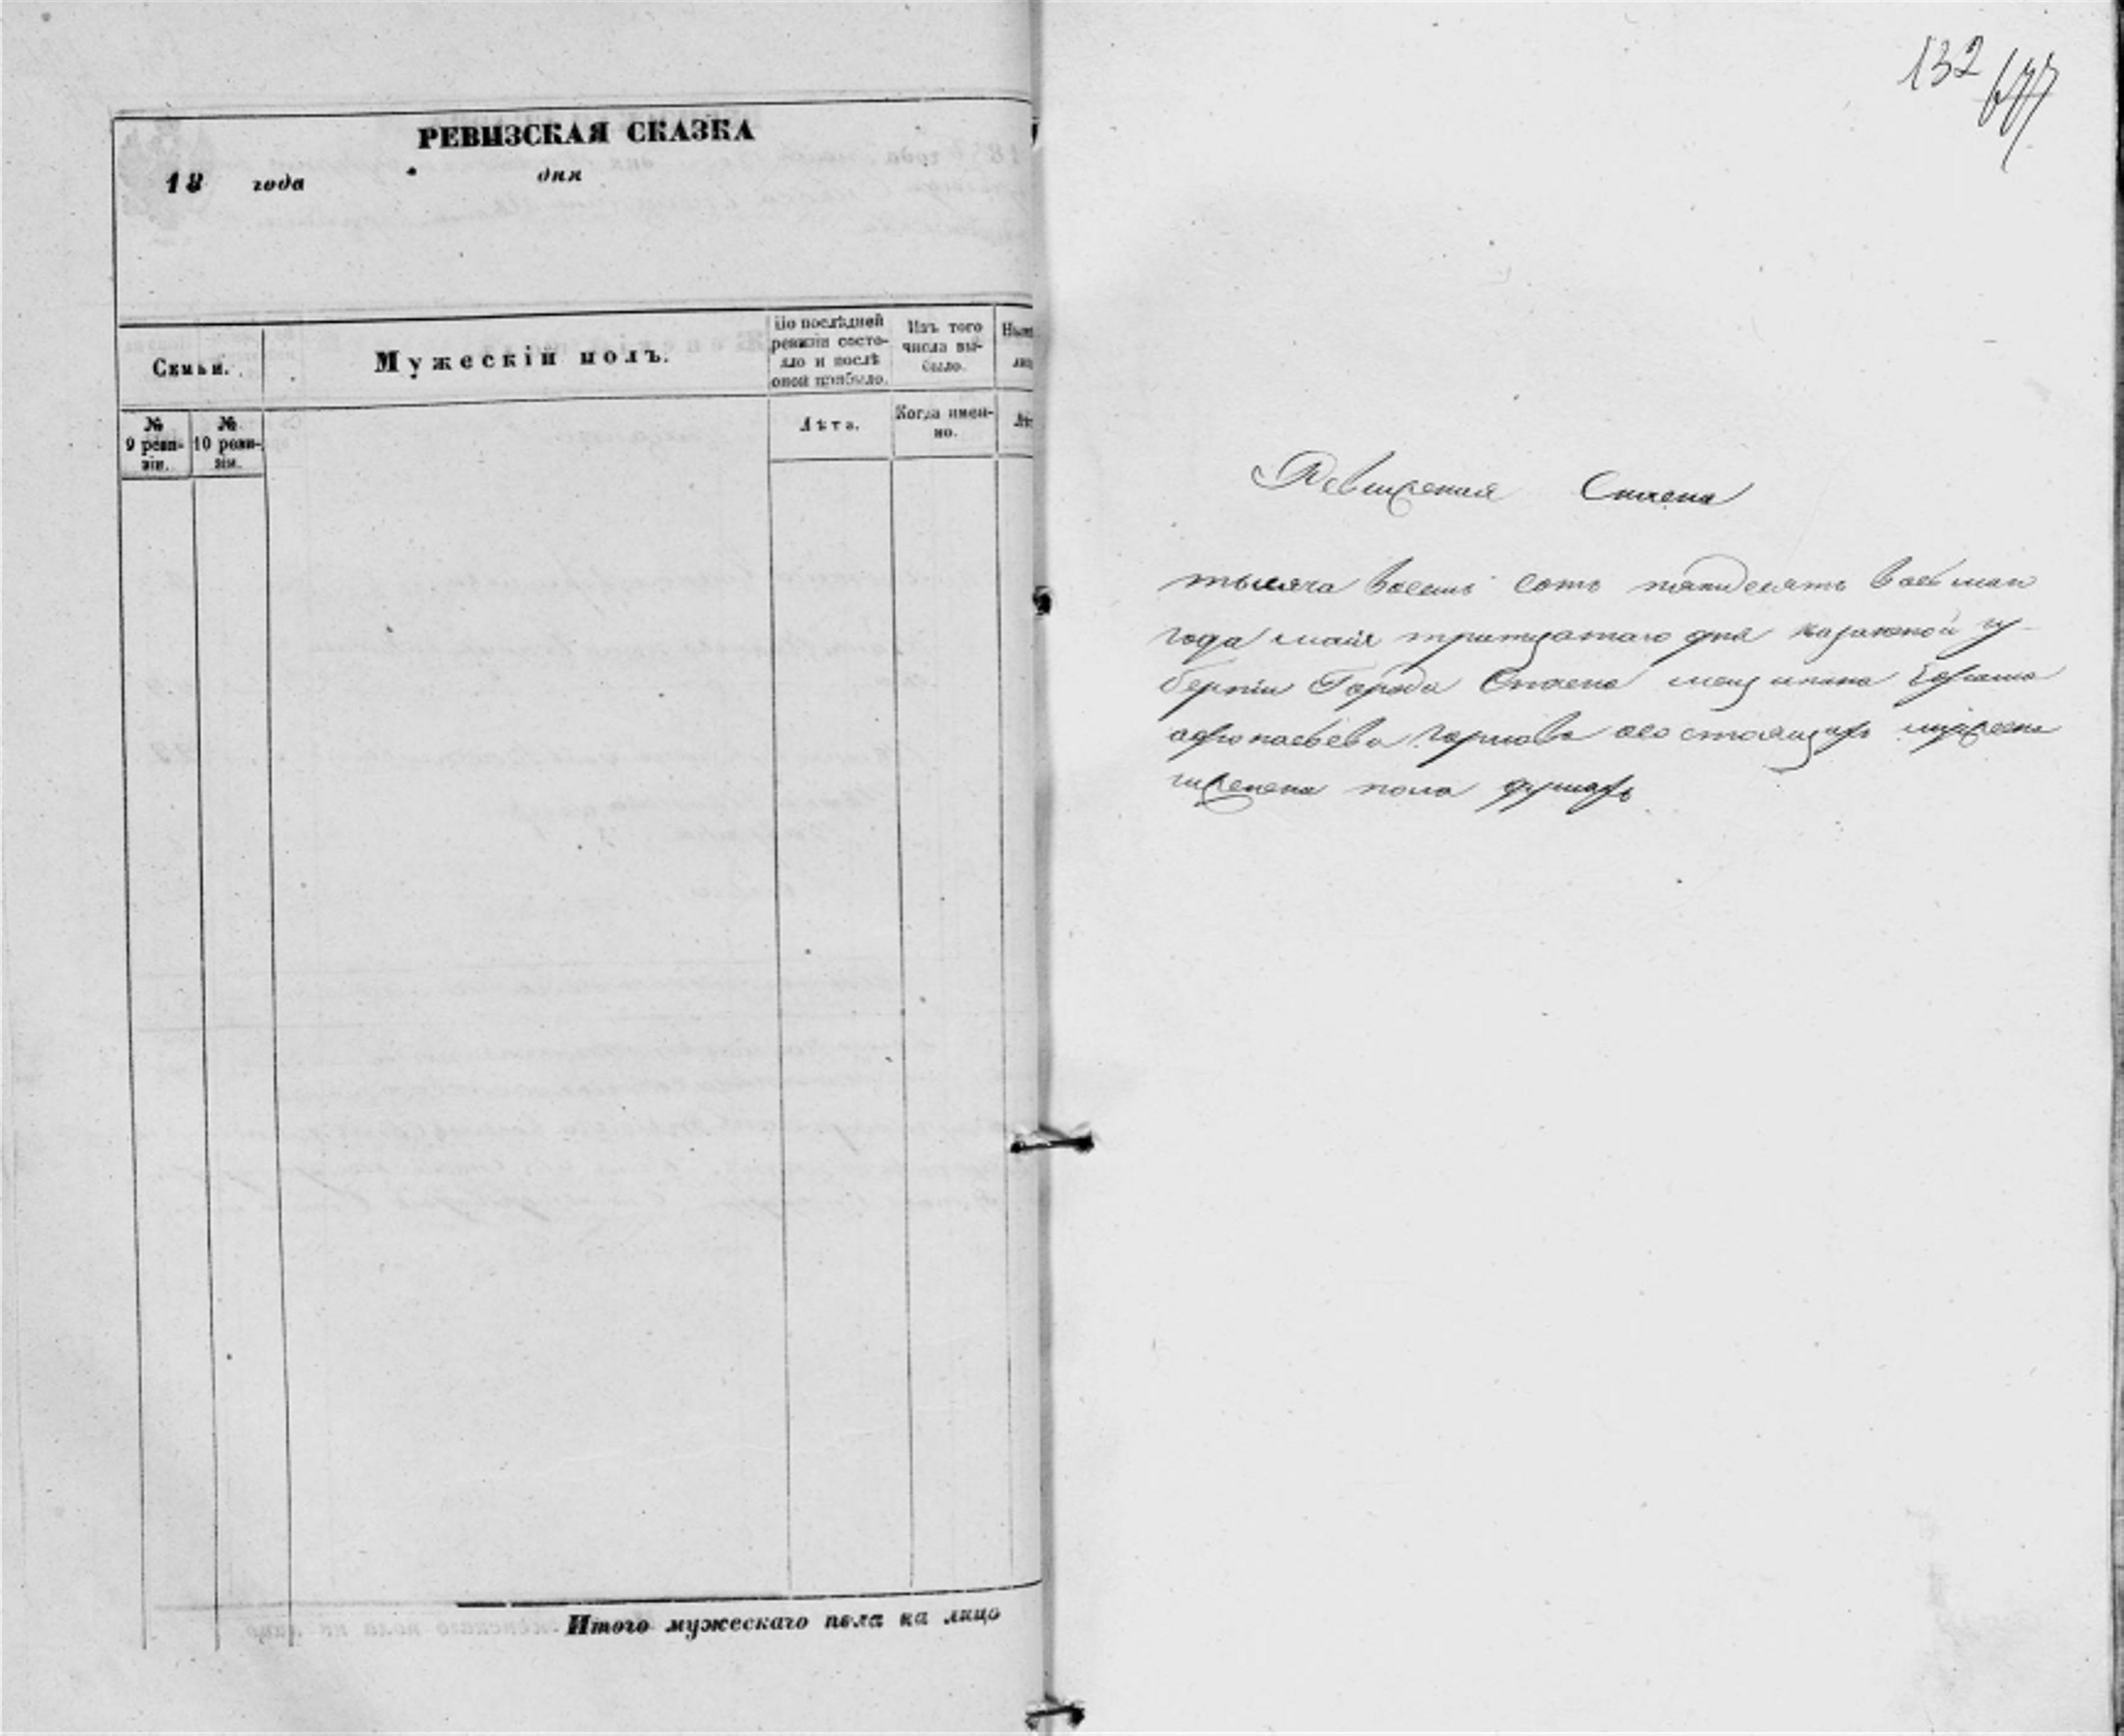 РЕВИЗСКАЯ СКАЗКА
18 года дня
Семьи.
Мужескій полъ.
По послѣдней ревизіи состояло и послѣ оной прибыло.
Изъ того числа выбыло.
№ 9 ревизіи.
№ 10 ревизіи.
Лѣта.
Когда именно.
Итого мужескаго пола на лицо
132
Ревизская Спаска
тысяча восемь сотъ пятидесятъ восьмаго
года майя тритцатаго дня казанской гу-
берніи Города Спаска мещанина
состоящихъ мужеска
женска пола душахъ